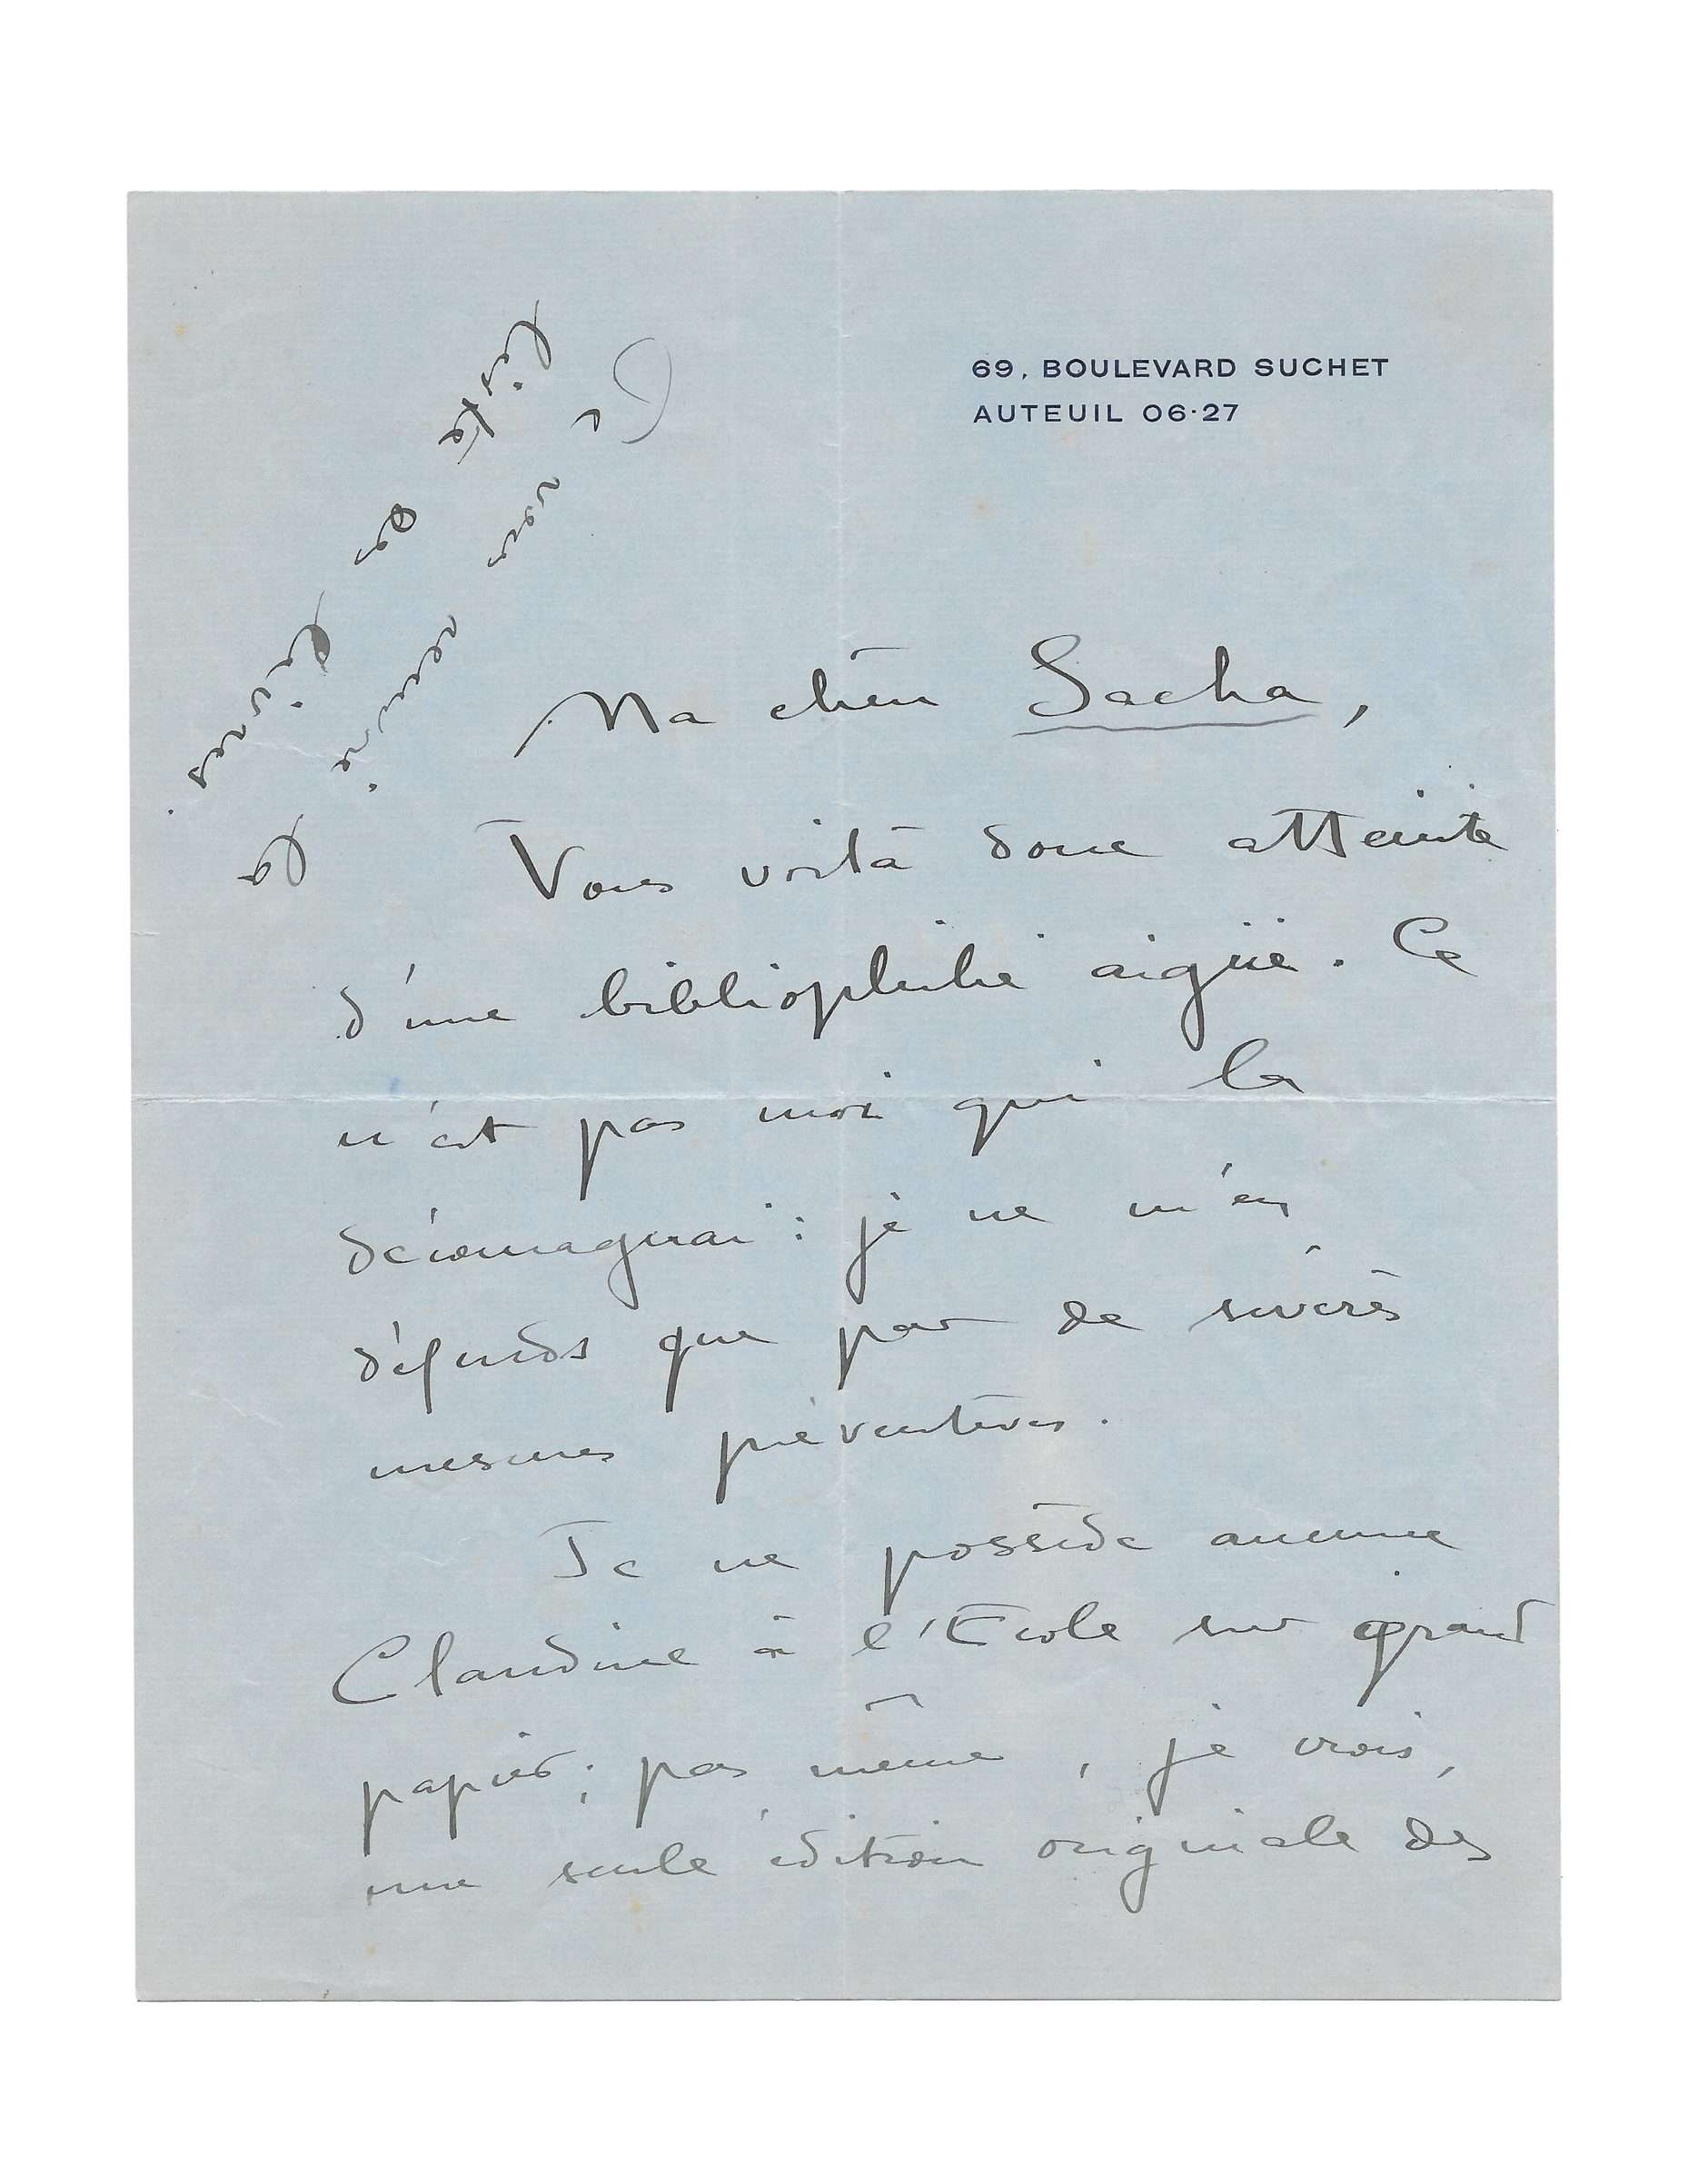 69, BOULEVARD SUCHET
AUTEUIL 06·27
vous la
liste de livres.
Ma chère Sacha,
Vous voilà donc atteinte
d'une bibliophilie aigüe. Ce
n'est pas moi qui la
découragerai : je ne m'en
défends que par de sévères
mesures préventives.
Je ne possède aucune
Claudine à l'Ecole sur grand
papier ; pas même, je crois,
une seule édition originale des